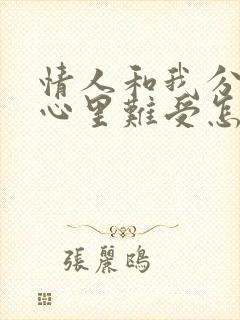 情人和我分
心里難受怎
張麗鴎